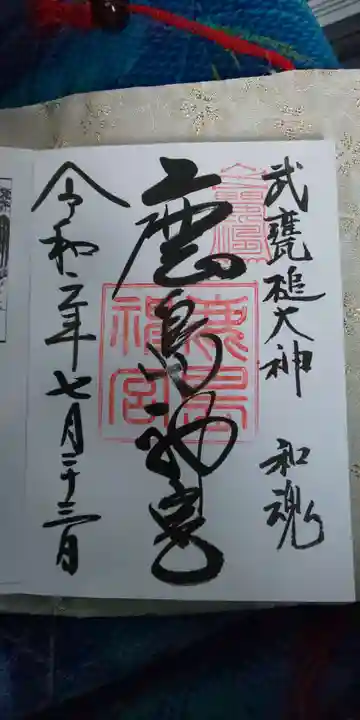 武甕槌大神 和魂
鹿島神宮
鹿島神宮
令和二年七月二十三日